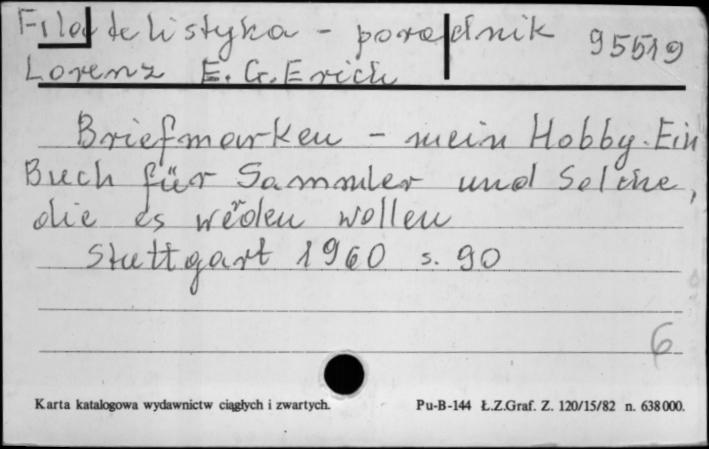 Filatelistyka - poradnik 95519
Lorenz E. G. Erich
Briefmarken - mein Hobby. Ein
Buch für Sammler und Solche,
die es werden wollen
Stuttgart 1960 s. 90
6
Karta katalogowa wydawnictw ciągłych i zwartych. Pu-B-144 Ł.Z.Graf. Z. 120/15/82 n. 638000.